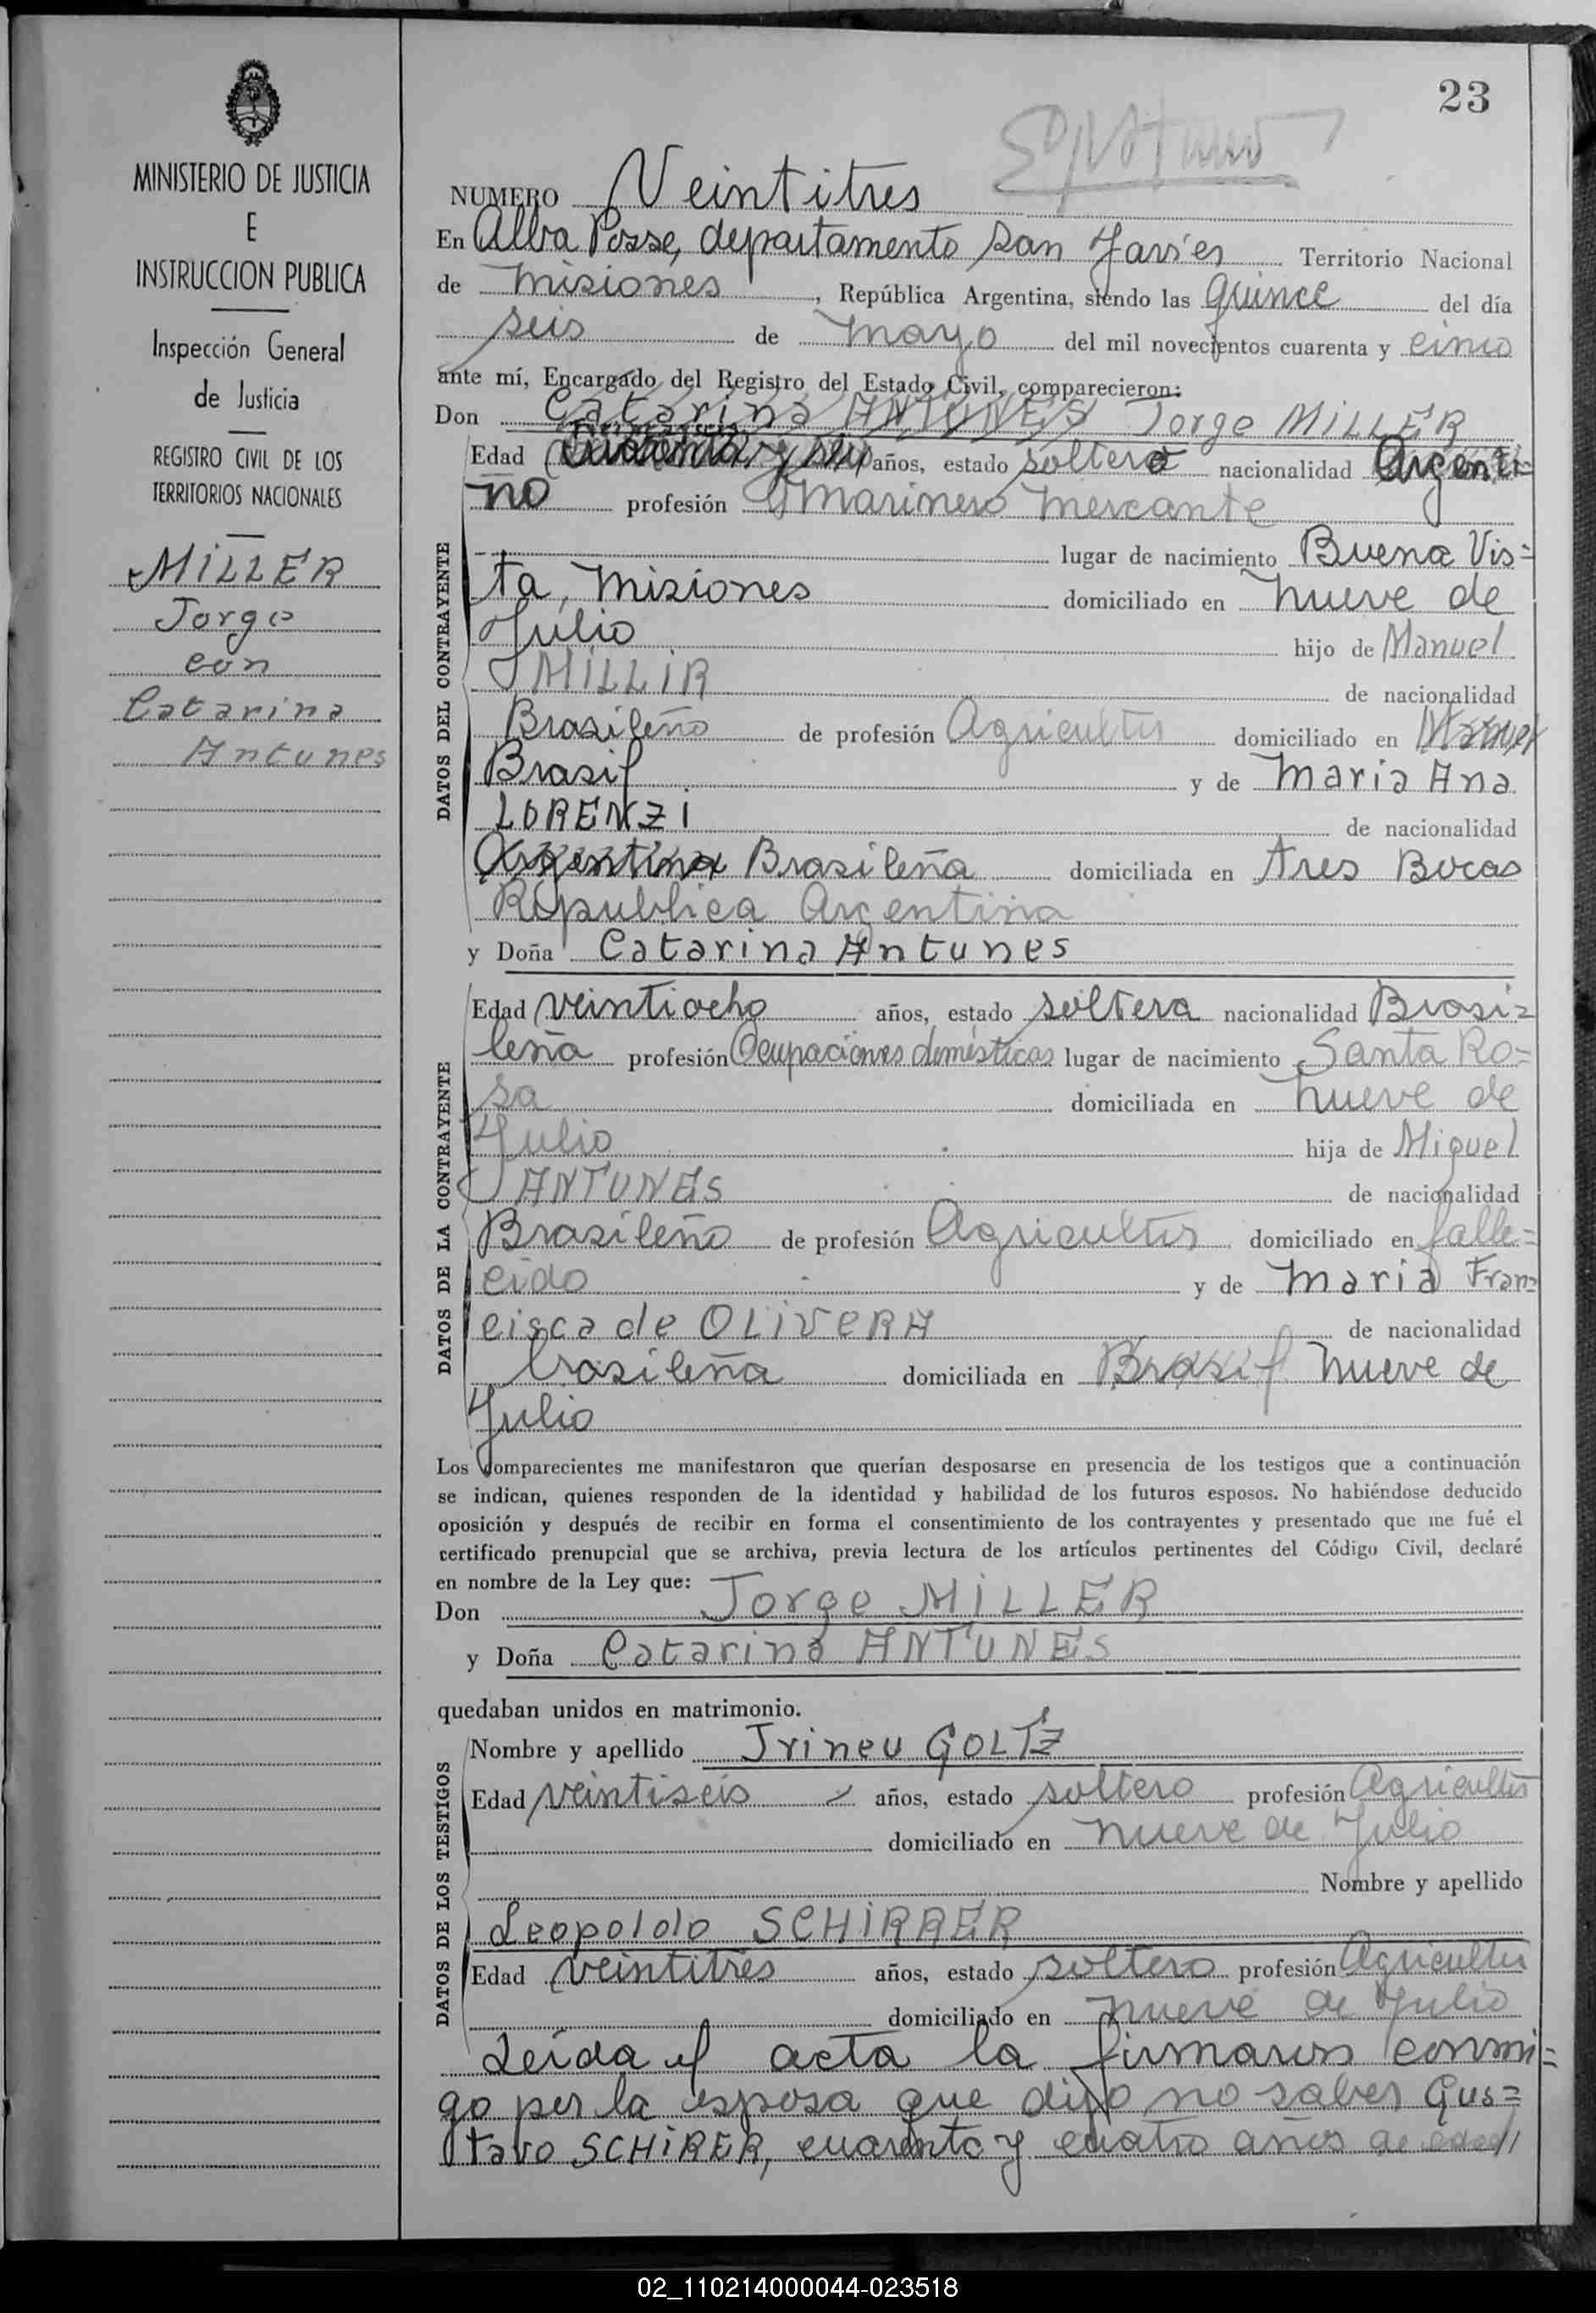 23
MINISTERIO DE JUSTICIA
E
INSTRUCCION PUBLICA
Inspección General
de Justicia
REGISTRO CIVIL DE LOS
TERRITORIOS NACIONALES
MILLER
Jorge
con
Catarina
Antunes
NUMERO Veintitres
En Alba Posse, departamento San Javier Territorio Nacional
de Misiones, República Argentina, siendo las quince del día
seis de mayo del mil novecientos cuarenta y cinco
ante mí, Encargado del Registro del Estado Civil, comparecieron:
Don Catarina ANTUNES Jorge MILLER
Edad años, estado soltero nacionalidad Argenti=
no profesión Marinero mercante
lugar de nacimiento Buena Vis=
ta, Misiones domiciliado en nueve de
Julio hijo de Manuel
MILLIR de nacionalidad
Brasileño de profesión Agricultor domiciliado en
Brasil y de Maria Ana
LORENZI de nacionalidad
Argentina Brasileña domiciliada en Tres Bocas
Republica Argentina
y Doña Catarina Antunes
Edad veintiocho años, estado soltera nacionalidad Brasi=
leña profesión Ocupaciones domésticas lugar de nacimiento Santa Ro=
sa domiciliada en nueve de
Julio hija de Miguel
ANTUNES de nacionalidad
Brasileño de profesión Agricultor domiciliado en falle=
cido y de Maria Fran=
cisca de OLIVERA de nacionalidad
brasileña domiciliada en Brasil nueve de
Julio
Los comparecientes me manifestaron que querían desposarse en presencia de los testigos que a continuación
se indican, quienes responden de la identidad y habilidad de los futuros esposos. No habiéndose deducido
oposición y después de recibir en forma el consentimiento de los contrayentes y presentado que me fué el
certificado prenupcial que se archiva, previa lectura de los artículos pertinentes del Código Civil, declaré
en nombre de la Ley que:
Don Jorge MILLER
y Doña Catarina ANTUNES
quedaban unidos en matrimonio.
Nombre y apellido Irineu GOLTZ
Edad veintiseis años, estado soltero profesión Agricultor
domiciliado en nueve de Julio
Nombre y apellido
Leopoldo SCHIRRER
Edad veintitres años, estado soltero profesión Agricultor
domiciliado en nueve de Julio
Leída el acta la firmaron conmi=
go por la esposa que dijo no saber Gus=
tavo SCHIRER, cuarenta y cuatro años de edad
DATOS DEL CONTRAYENTE
DATOS DE LA CONTRAYENTE
DATOS DE LOS TESTIGOS
02_110214000044-023518